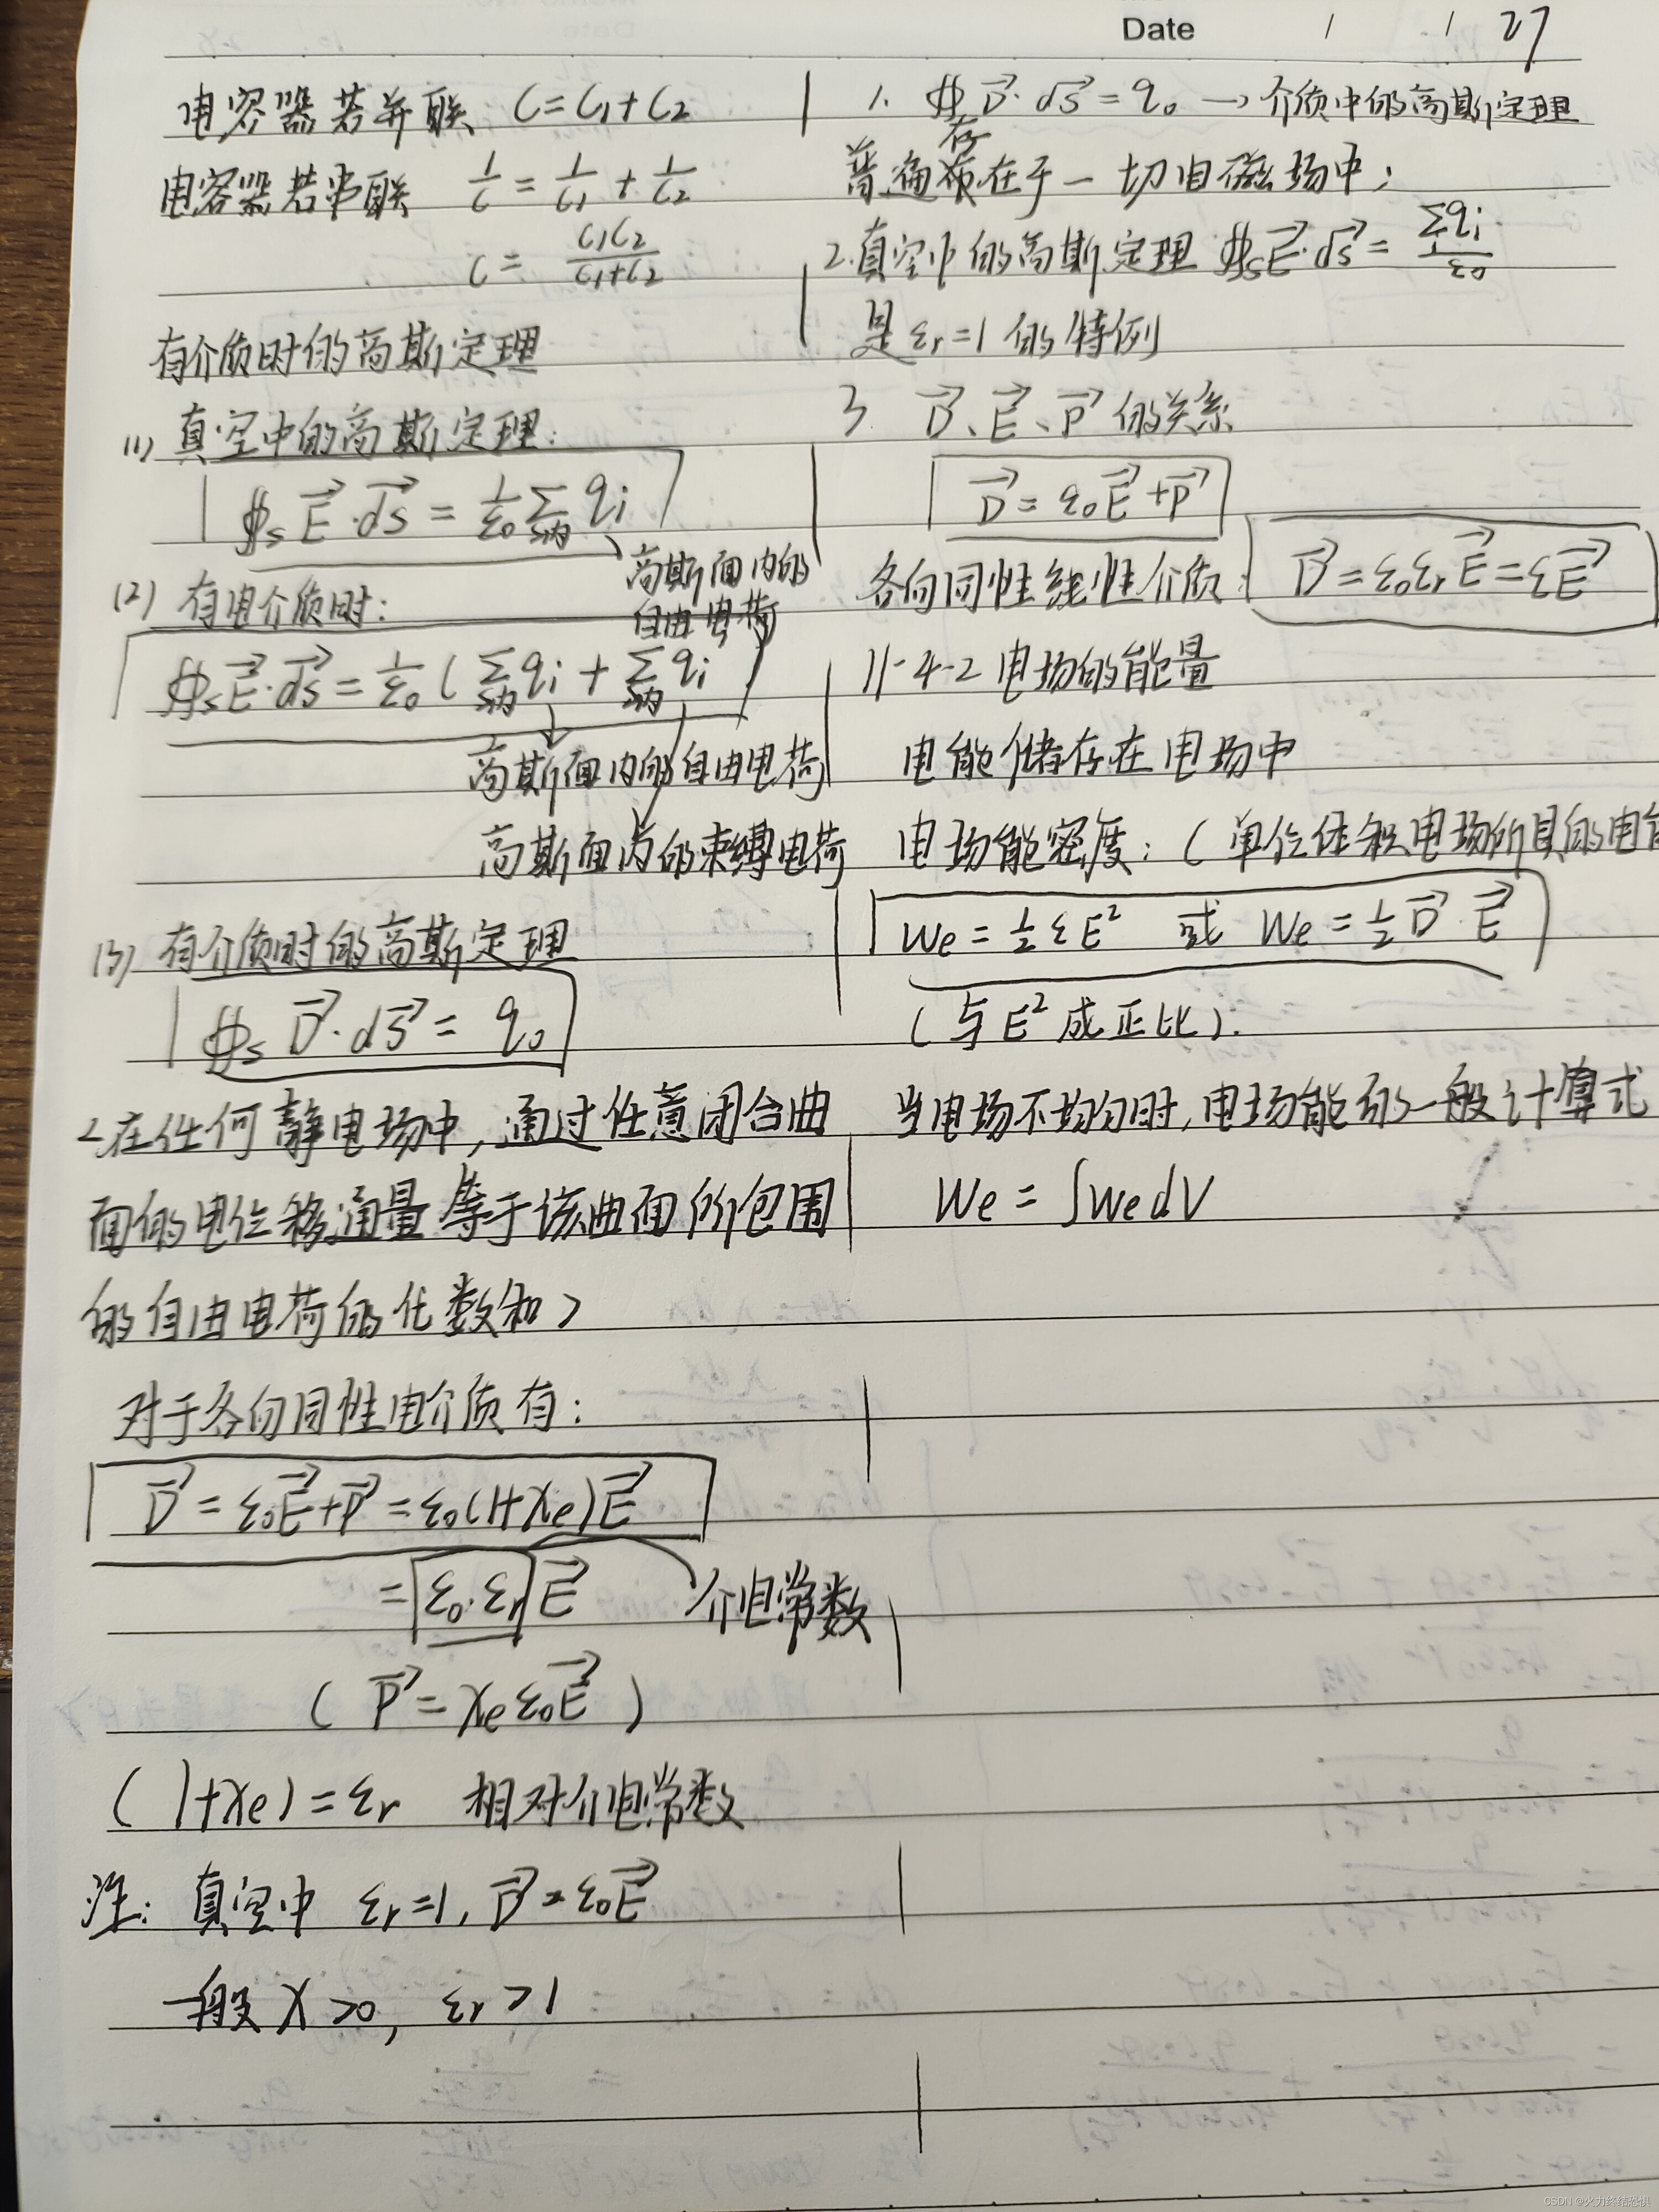 Date / / 27
电容器若并联 C=C₁+C₂
电容器若串联 1/C = 1/C₁ + 1/C₂
C = C₁C₂/(C₁+C₂)
有介质时的高斯定理
(1) 真空中的高斯定理:
∯s E⃗·dS⃗ = 1/ε₀ ∑S内 qi
高斯面内的
自由电荷
(2) 有电介质时:
∯s E⃗·dS⃗ = 1/ε₀ ( ∑S内 qi + ∑S内 qi
高斯面内的自由电荷
高斯面内的束缚电荷
(3) 有介质时的高斯定理
∯s D⃗·dS⃗ = q₀
<在任何静电场中,通过任意闭合曲
面的电位移通量等于该曲面所包围
的自由电荷的代数和>
对于各向同性电介质有:
D⃗ = ε₀E⃗+P⃗ = ε₀(1+χe)E⃗
= ε₀·εr E⃗ 介电常数
( P⃗ = χe ε₀E⃗ )
(1+χe) = εr 相对介电常数
注: 真空中 εr=1, D⃗ = ε₀E⃗
一般 χ>0, εr>1
1. ∯ D⃗·dS⃗ = q₀ → 介质中的高斯定理
存
普遍在于一切电磁场中;
2.真空中的高斯定理 ∯s E⃗·dS⃗ = ∑qi/ε₀
是 εr=1 的特例
3. D⃗、E⃗、P⃗ 的关系
D⃗ = ε₀E⃗+P⃗
各向同性线性介质: D⃗ = ε₀εrE⃗ = εE⃗
11-4-2 电场的能量
电能储存在电场中
电场能密度: (单位体积电场所具的电能
We = ½εE² 或 We = ½D⃗·E⃗
(与E²成正比).
当电场不均匀时,电场能的一般计算式
We = ∫We dV
CSDN @火力终结恐惧